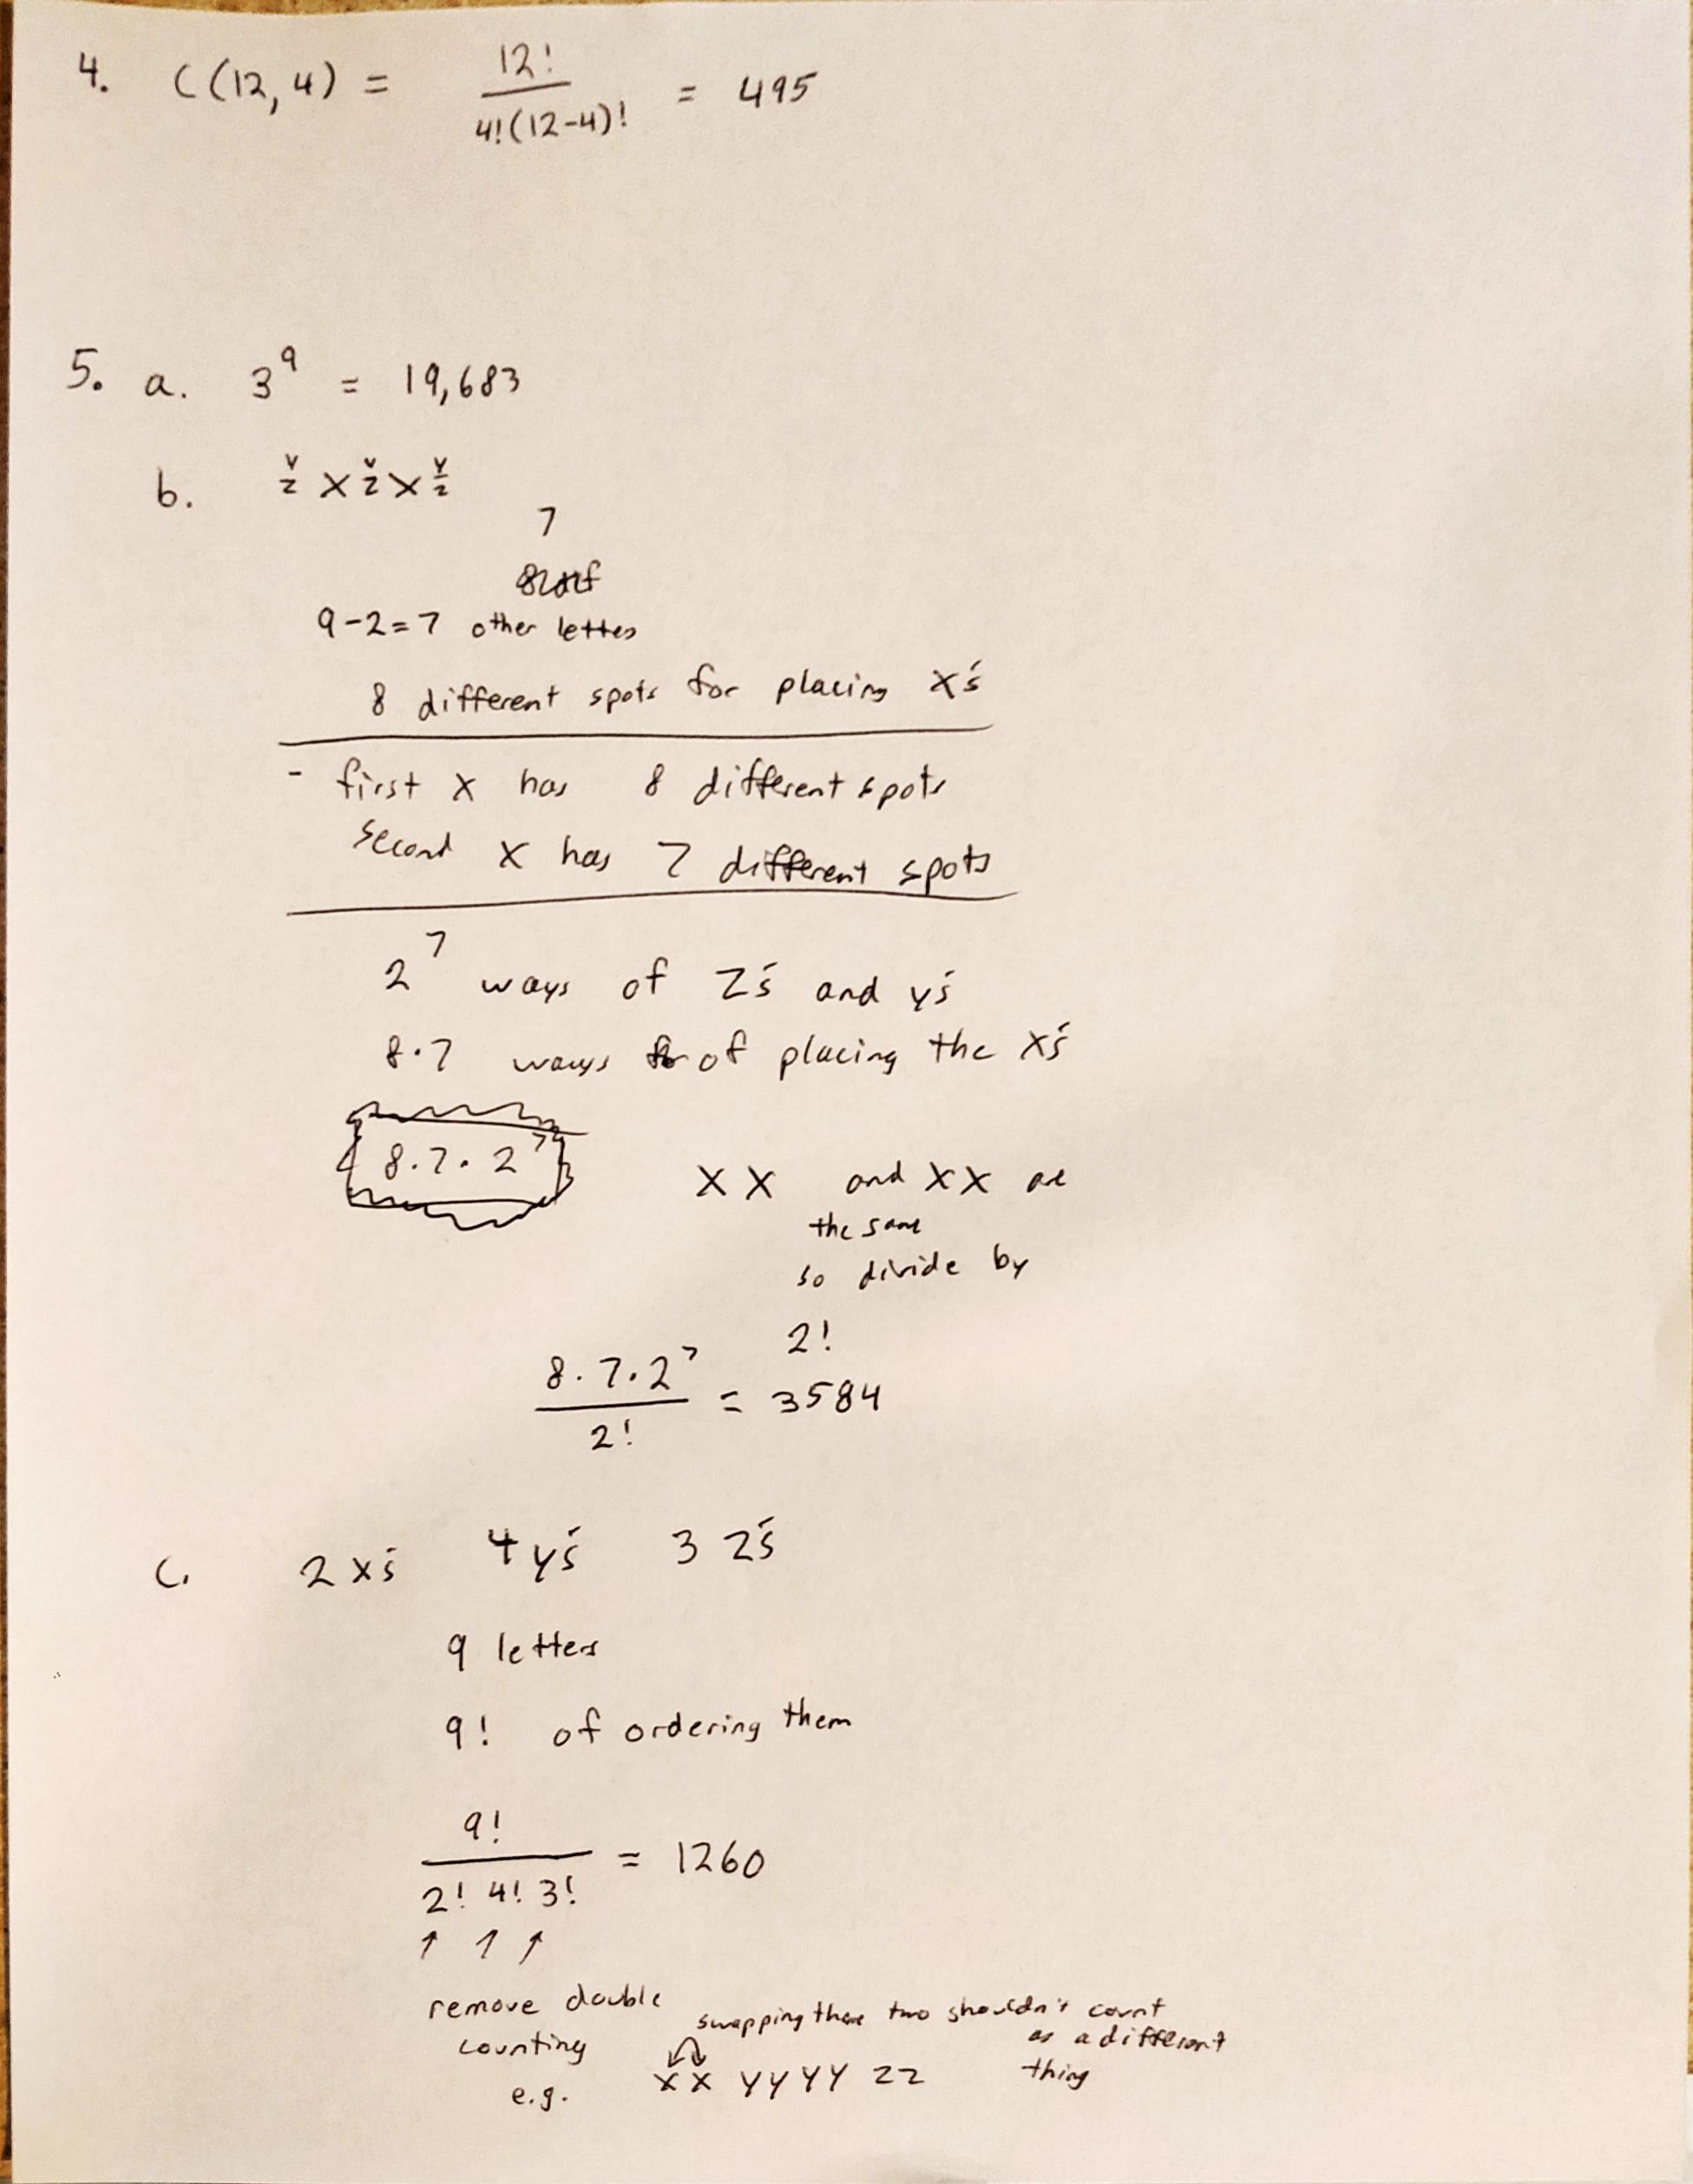 4. C(12, 4) = 12! / 4!(12-4)! = 495
5. a. 3^9 = 19,683
b. y/z X y/z X y/z
7
9-2=7 other lettes
8 different spots for placing X's
- first X has 8 different spots
second X has 7 different spots
2^7 ways of Z's and y's
8·7 ways of placing the X's
8·7·2^7
XX and XX are
the same
so divide by
2!
8·7·2^7 / 2! = 3584
c. 2 x's 4 y's 3 z's
9 letters
9! of ordering them
9! / 2! 4! 3! = 1260
↑ ↑ ↑
remove double
counting
e.g.
swapping these two shouldn't count
as a different
thing
XX YYYY ZZ